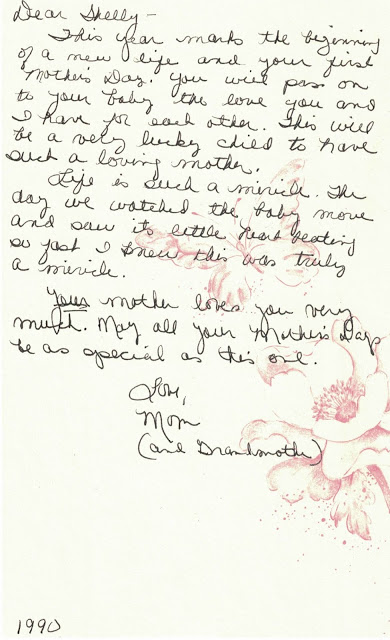 Dear Shelly -
This year marks the beginning
of a new life and your first
Mother's Day. You will pass on
to your baby the love you and
I have for each other. This will
be a very lucky child to have
such a loving mother.
Life is such a miricle. The
day we watched the baby move
and saw its little heart beating
so fast I knew this was truly
a miricle.
Your mother loves you very
much. May all your Mother's Days
be as special as this one.
Love,
Mom
(and Grandmother)
1990